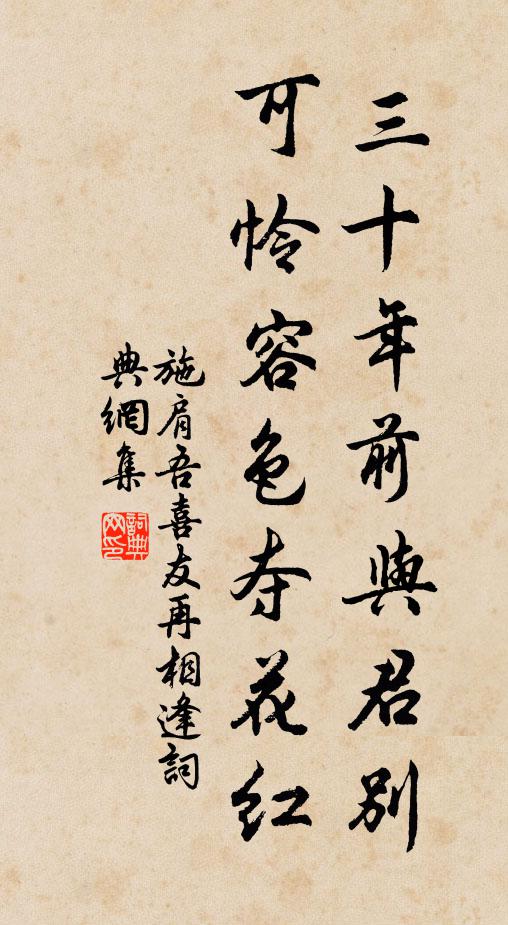 三十年前與君別
可怜容色夺花紅
施肩吾喜友再相逢詞
典網集
詞典
网印